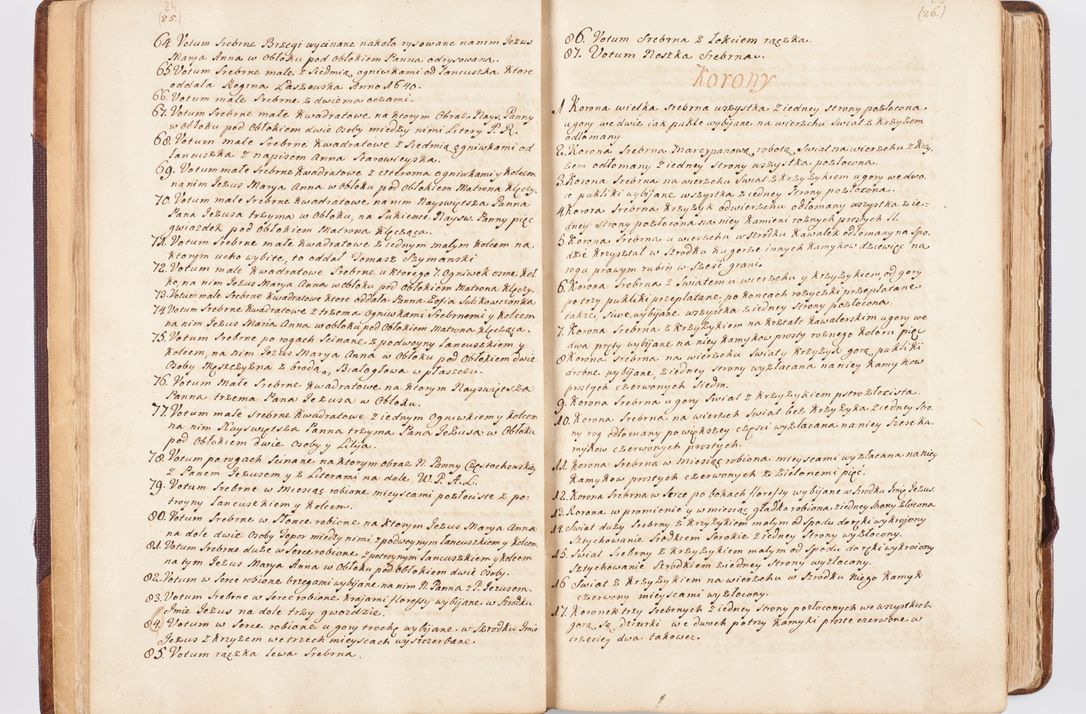 24
(25.)
64 Votum Srebrne Brzegi wycinane nakoło rysowane na nim Jezus
Marya Anna w Obłoku pod Obłokiem Panna odrysowana.
65 Votum Srebrne małe, z Siedmią ogniwkami od łancuszka które
oddała Regina Laszowska Anno 1640.
66. Votum małe Srebrne z dwiema oczami.
67. Votum Srebrne małe Kwadratowe, na ktorym Obraz Nays. Panny
w obłoku pod Obłokiem dwie Osoby między nimi Litery P. R.
68. Votum małe Srebrne Kwadratowe z Siedmią ogniwkami od
Łancuszka z napisem Anna Starowieyska.
69. Votum małe Srebrne Kwadratowe z czteroma ogniwkami y kołcem
na nim Jezus Marya Anna w Obłoku pod Obłokiem Matrona Klęczy.
70. Votum małe Srebrne Kwadratowe, na nim Nayswiętsza Panna
Pana Jezusa trzyma w Obłoku, na Sukience Naysw. Panny pięc
gwiazdek pod Obłokiem Matrona Klęcząca.
71. Votum Srebrne małe Kwadratowe z iednym małym kołcem na
ktorym ucho wybite, to oddał Tomasz Szymanski
72. Votum małe Kwadratowe Srebrne u ktorego 7. Ogniwek osme koł-
ko, na nim Jezus Marya Anna w Obłoku pod Obłokiem Matrona Klęczy.
73. Votum małe Srebrne Kwadratowe ktore oddała Panna Zofia Sulikowczonka
74. Votum Srebrne Kwadratowe z trzema Ogniwkami Srebrnemi y kołcem
na nim Jezus Maria Anna w obłoku pod Obłokiem Matrona Klęcząca.
75. Votum Srebrne po rogach Scinane z podwoyną łancuszkiem y
kołcem, na nim Jezus Marya Anna w Obłoku pod Obłokiem dwie
Osoby Męszczyzna z brodą, Białogłowa w płaszczu.
76. Votum Małe Srebrne Kwadratowe na ktorym Nayswiętsza
Panna trzema Pana Jezusa w Obłoku.
77. Votum małe Srebrne Kwadratowe z iednym Ogniwkiem y kołcem
na nim Nayswiętsza Panna trzyma Pana Jezusa w Obłoku
pod Obłokiem dwie Osoby y Lilija.
78. Votum po rogach Scinane na ktorym obraz N. Panny Częstochowskiey
z Panem Jezusem y z Literami na dole W. P. A. L.
79. Votum Srebrne w Miesiąc robione mieyscami pozłociste z po-
troyny Łancuszkiem y kołcem.
80. Votum Srebrne w Słonce robione, na ktorym Jezus Marya Anna
na dole dwie Osoby Topor między nimi z podwoynym łancuszkiem y kołcem.
81. Votum Srebrne duże w serce robione z potroynym łancuszkiem y kołcem
na tym Jezus Marya Anna w Obłoku pod Obłokiem dwie Osoby.
82. Votum w Serce robione brzegami wybijane na nim N. Panna z P. Jezusem.
83. Votum Srebrne w Serce robione, krajami floressy wybijane, w Szrodku
Jmie Jezus na dole trzy gwozdzie.
84. Votum w Serce robione u gory trochę wybijane w Szrodku Jmie
Jezus z krzyzem we trzech mieyscach wyszczerbane.
85. Votum rączka lewa Srebrna.
(26.)
86. Votum Srebrna z Łokciem rączka.
87. Votum Noszka Srebrna.
Korony
1. Korona wielka Srebrna wszystka z iedney Strony pozłocona
u gory we dwie iak pukle wybijane na wierzchu Swiat z krzyżem
odłomany
2. Korona Srebrna Marcypanową robotą Swiat na wierzchu z krzy-
żem odłomany z iedney Strony wszystka pozłocona.
3. Korona Srebrna na wierzchu Swiat z krzyżykiem u gory we dwo-
ie pukliki wybijane wszystka z iedney Strony pozłocona.
4. Korona Srebrna krzyżyk od wierzchu odłomany wszystka z ie-
dney Strony pozłocona na niey kamieni rożnych prostych 11.
5 Korona Srebrna u wierzchu w Szrodku Kawałek odłomany na Spo-
dzie krzyształ w Szrodku ku gorze innych kamykow dziewięc na
rogu prawym rubin w Szesc grani.
6. Korona Srebrna z Swiatem u wierzchu y krzyżykiem, od gory
po trzy pukliki przeplatane, po koncach rożyczki przeplatane
także, Siwe, wybijane wszystka z iedney Strony pozłocona.
7. Korona Srebrna z krzyżykiem na krztałt kawalerskim u gory we
dwa pryty wybijane na niey kamykow prosty rożnego koloru pięc
8. Korona Srebrna na wierzchu Swiat y krzyżyk gorą puklikii
drobne wybijane z iedney Strony wyzłacana na niey kamykow
prostych czerwonych Siedm.
9. Korona Srebrna u gory Swiat z krzyżykiem pstrozłocista.
10. Korona Srebrna, na wierzch Swiat bez krzyżyka z iedney Stro-
ny rog odłomany po większey częsci wyzłacana na niey Szesc ka-
mykow czerwonych prostych.
11. Korona Srebrna w Miesiąc robiona mieyscami wyzłacana na niey
Kamykow prostych czerwonych z Zielonemi pięc.
12. Korona Srebrna w Serce po bokach floressy wybijane w Szrodku Jmię Jezus.
13. Korona w promienie y w miesiąc gładko robiona z iedney Strony złocona
14. Swiat duży Srebrny z krzyżykiem małym od Spodu do ręki wykrojony
Sztychowanie Szrodkiem Szrokie z iedney Strony wyzłocony.
15. Swiat Srebrny z krzyżykiem małym od Spodu do ręki wykroiony
Sztychowanie Szrodkiem z iedney Strony wyzłacany.
16 Swiat z krzyżykiem na wierzchu w Szrodku niego kamyk
czerwony mieyscami wyzłocony.
17. Koronek trzy Srebrnych z iedney Strony pozłoconych we wszystkich
gorą Są dziurki we dwoch potrzy kamyki proste czerwone w
trzeciey dwa takowez.